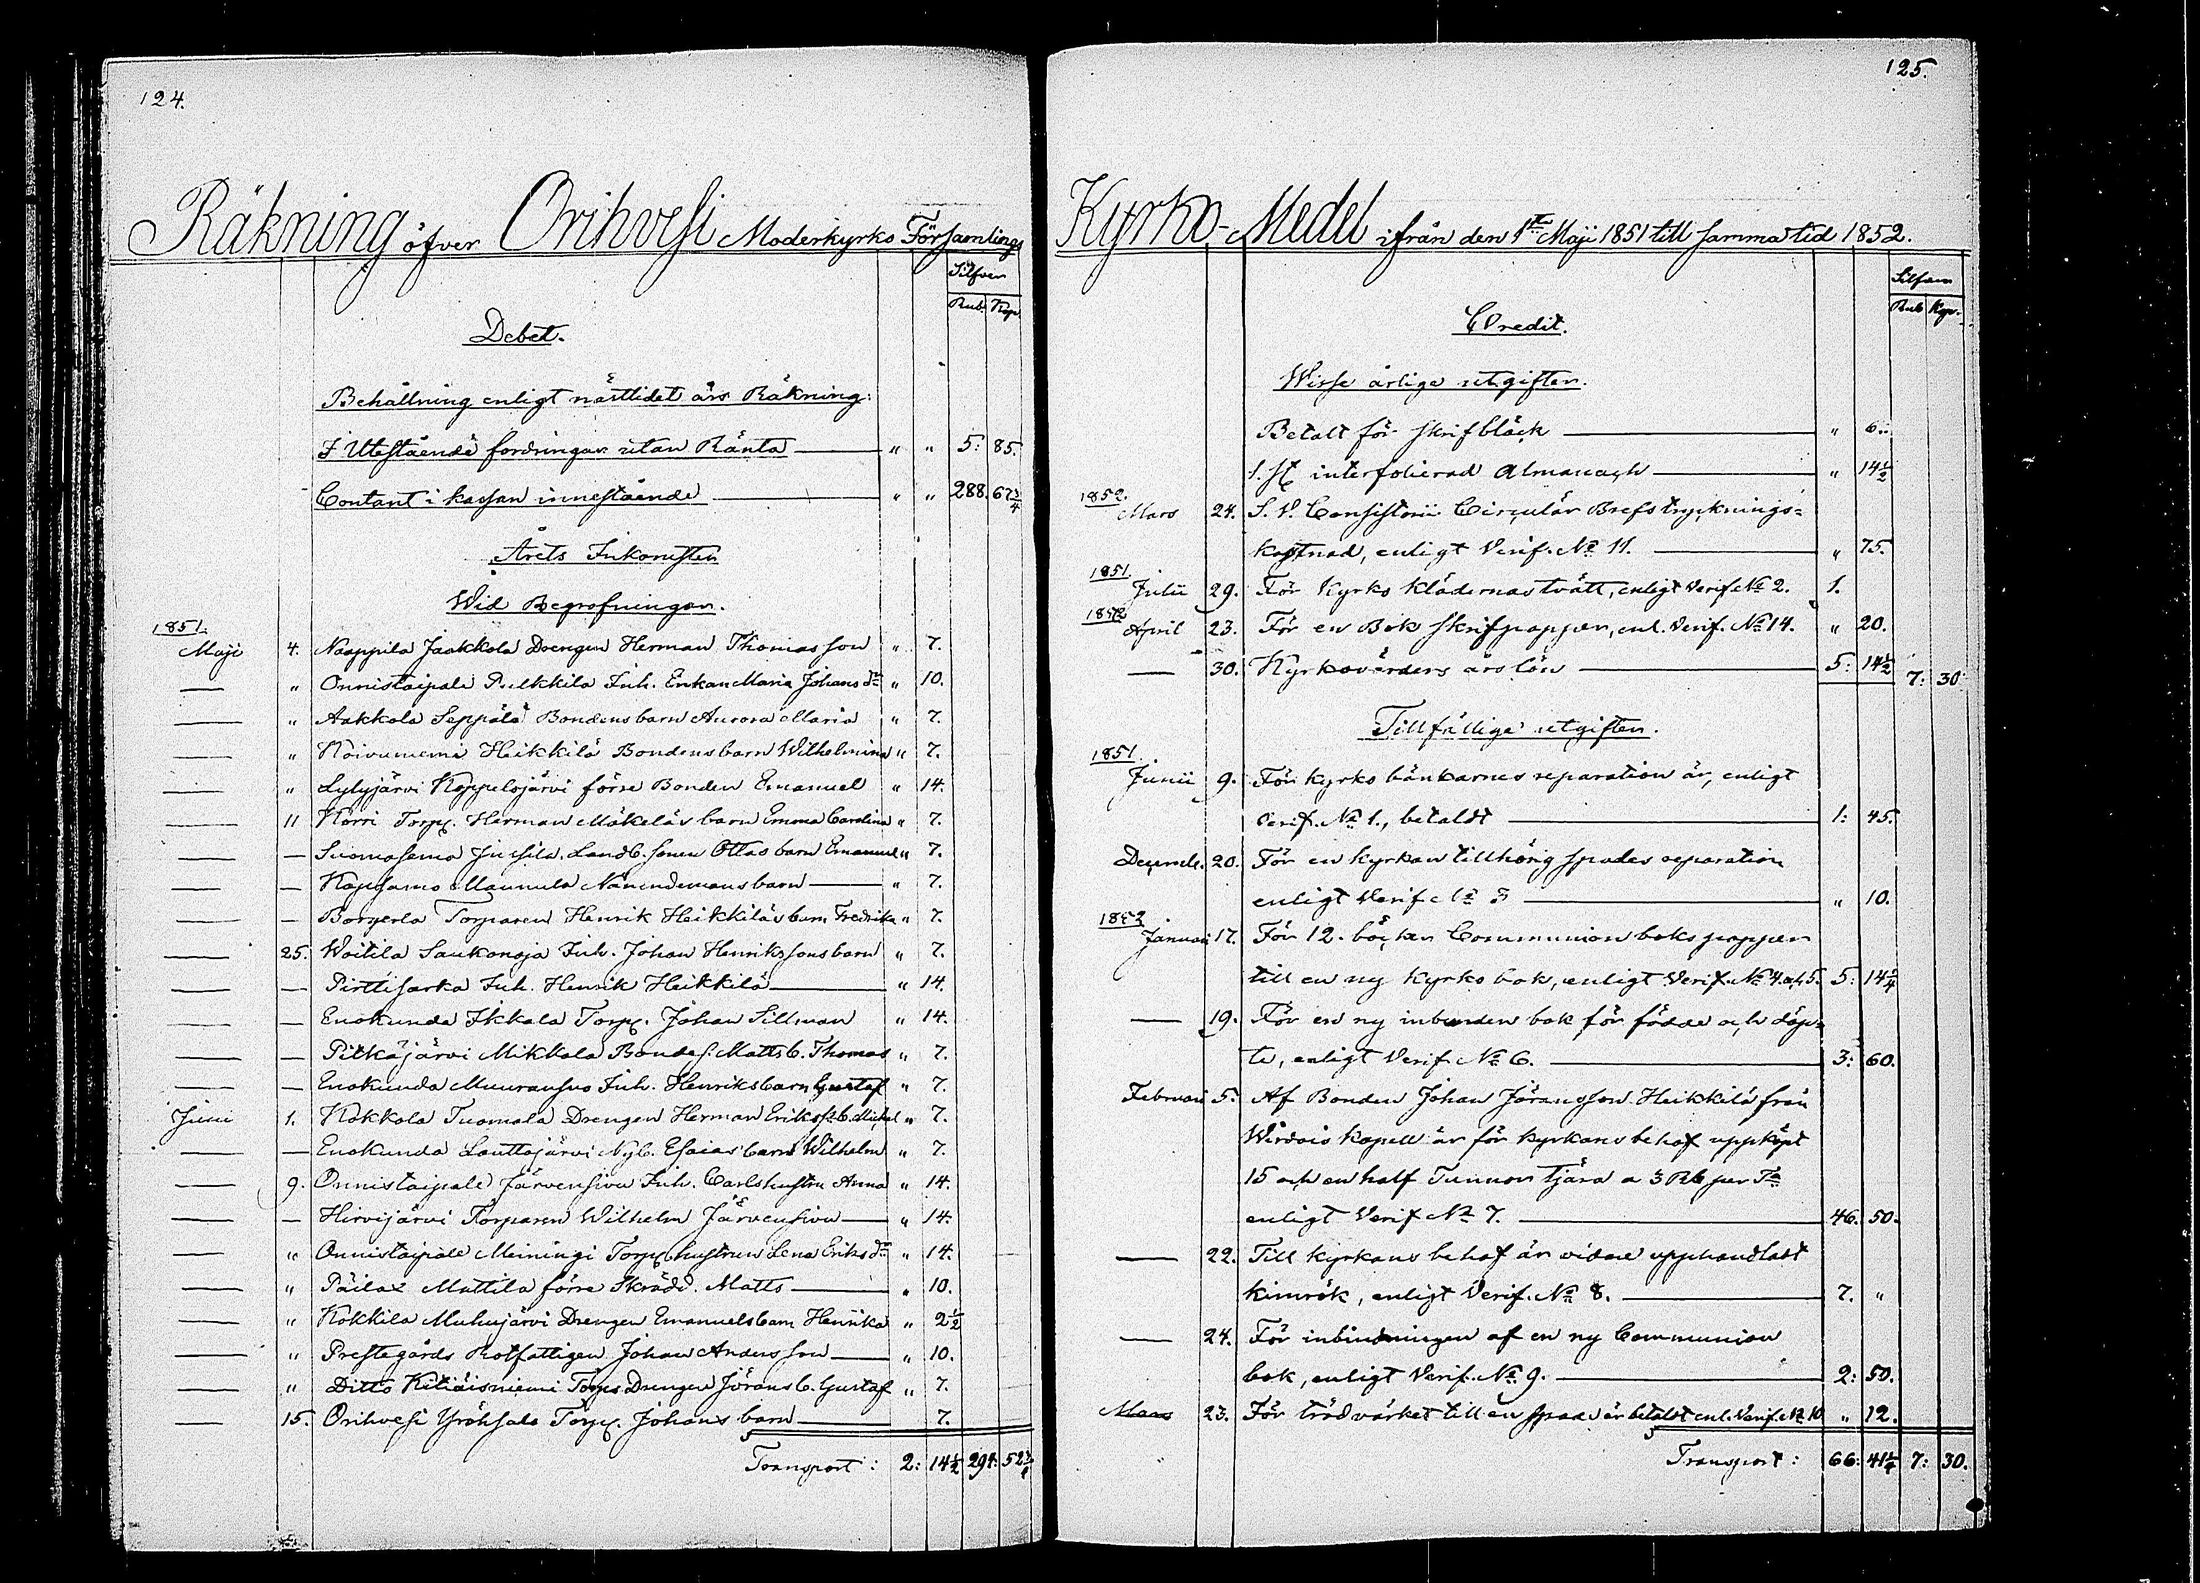 124.
Räkning öfver Orihvesi Moderkyrko Församlings
Silfver
Rub. Kop.
Debet.
Behållning enligt nästlidet års Räkning:
I Utestående fordringar utan Ränta — " " 5: 85.
Contant i kassan innestående — " " 288. 67 3/4
Årets Inkomster
Wid Begrafningar.
1851.
Maji 4. Naappila Jaakkola Drengen Herman Thomasson " 7.
— " Onnistaipale Pulkkila Inh. Enkan Maria Johans dr " 10.
— " Aakkola Seppälä Bondens barn Aurora Maria " 7.
— " Koivuniemi Heikkilä Bondens barn Wilhelmina " 7.
— " Lylyjärvi Koppelojärvi förre Bonden Emanuel " 14.
— 11 Körri Torp. Herman Mäkeläs barn Emma Carolina " 7.
— — Suomasema Jussila Landb. sonen Ottos barn Emanuel " 7.
— — Kapsamo Maunula Nämndemans barn — " 7.
— — Torparen Henrik Heikkiläs barn Fredrika " 7.
— 25. Woitila Saukonoja Inh. Johan Henrikssons barn " 7.
— — Pirttisarka Inh. Henrik Heikkilä — " 14.
— — Enokunda Ikkala Torp. Johan Sillman " 14.
— — Pitkäjärvi Mikkola Bondes. Matts b. Thomas " 7.
— — Enokunda Muuransuo Inh. Henriks barn Gustaf " 7.
Juni 1. Kokkola Tuomola Drengen Herman Eriks b. Michel " 7.
— — Enokunda Lauttajärvi Nyb. Esaias barn Wilhelm " 7.
— 9. Onnistaipale Järvensivu Inh. Carls hustru Anna " 14.
— — Hirvijärvi Torparen Wilhelm Järvensivu — " 14.
— " Onnistaipale Meiningi Torp. hustrun Lena Eriks dr " 14.
— " Päilax Mattila förre Skrädd. Matts — " 10.
— " Kokkila Muhujärvi Drengen Emanuels barn Henrika " 2 1/2
— " Prestegårds Rotfattigen Johan Andersson — " 10.
— " Ditto Kitiäisniemi Torps Drengen Jörans b. Gustaf " 7.
— 15. Orihvesi Yröhsalo Torp. Johans barn — 7.
Transport: 2: 14 1/2 294: 52 3/4
125.
Kyrko-Medel ifrån den 1ste Maji 1851 till samma tid 1852.
Silfver
Rub Kop.
Credit.
Wisse årlige utgifter.
Betalt för skrifbläck — " 6.
1. st interfolierad Almanach — " 14 1/2
1852.
Mars 24. S. V. Consistorii Circulär Brefs trycknings-
kostnad, enligt Verif. No 11. — " 75.
1851.
Julii 29. För Kyrko klädernas tvätt, enligt Verif. No 2. 1.
1852
April 23. För en Bok skrifpapper, enl. Verif. No 14. " 20.
— 30. Kyrkovärdens årslön — 5: 14 1/2 7: 30.
Tillfällige utgifter.
1851.
Junii 9. För kyrko bänkarnes reparation är, enligt
Verif. No 1., betaldt — 1: 45.
Decemb. 20. För en kyrkan tillhörig spades reparation
enligt Verif. No 3 — " 10.
1852
Januari 17. För 12. böcker Communion boks papper
till en ny Kyrko bok, enligt Verif. No 4. och 5. 5: 14 1/4
— 19. För en ny inbunden bok för födde och döp-
te, enligt Verif. No 6. — 3: 60.
Februari 5. Af Bonden Johan Jöransson Heikkilä från
Wirdois Kapell är för kyrkans behof uppköpt
15 och en half Tunnor tjära a 3 Rb per Ta
enligt Verif No 7. — 46. 50.
— 22. Till Kyrkans behof är vidare upphandladt
kimrök, enligt Verif. No 8. — 7. "
— 24. För inbindningen af en ny Communion
bok, enligt Verif. No 9. — 2: 50.
Mars 23. För trädvärket till en spade är betaldt enl. Verif. No 10 " 12.
Transport: 66: 41 1/4 7: 30.